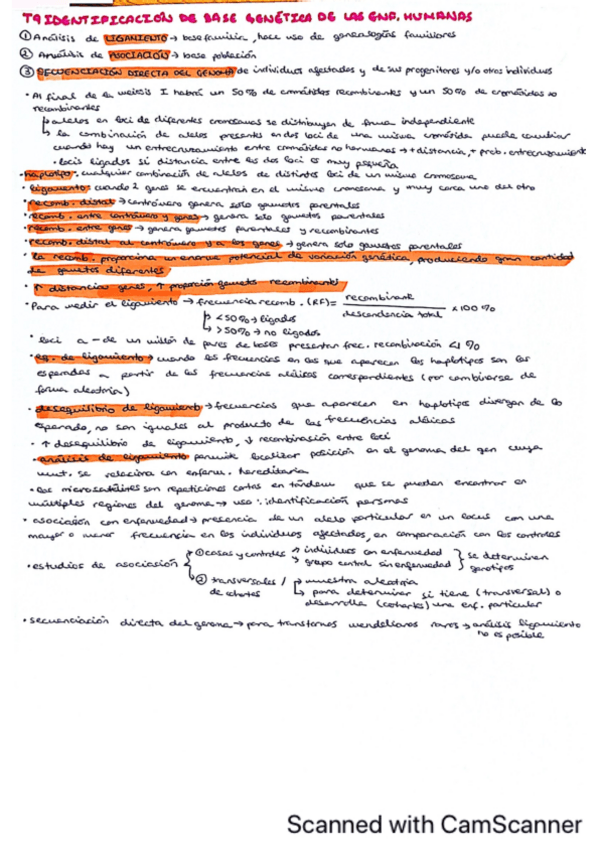 T9 IDENTIFICACIÓN DE BASE GENÉTICA DE LAS ENF. HUMANAS
① Análisis de LIGAMIENTO → base familia, hace uso de genealogías familiares
② Análisis de ASOCIACIÓN → base población
③ SECUENCIACIÓN DIRECTA DEL GENOMA de individuos afectados y de sus progenitores y/o otros individuos
· Al final de la meiosis I habrá un 50% de cromátidas recombinantes y un 50% de cromátidas no
recombinantes
↳ alelos en loci de diferentes cromosomas se distribuyen de forma independiente
↳ la combinación de alelos presentes en dos loci de una misma cromátida puede cambiar
cuando hay un entrecruzamiento entre cromátidas no hermanas → + distancia, + prob. entrecruzamiento
· locis ligados si distancia entre los dos loci es muy pequeña
· haplotipo: cualquier combinación de alelos de distintos loci de un mismo cromosoma
· ligamiento: cuando 2 genes se encuentran en el mismo cromosoma y muy cerca uno del otro
· recomb. distal → centrómero genera solo gametos parentales
· recomb. entre centrómero y genes → genera solo gametos parentales
· recomb. entre genes → genera gametos parentales y recombinantes
· recomb. distal al centrómero y a los genes → genera solo gametos parentales
· la recomb. proporciona un enorme potencial de variación genética, produciendo gran cantidad
de gametos diferentes
· ↑ distancia genes, ↑ proporción gametos recombinantes
· Para medir el ligamiento → frecuencia recomb. (RF) = recombinante / descendencia total x 100 %
↳ < 50% → ligados
↳ > 50% → no ligados
· loci a - de un millón de pares de bases presentan frec. recombinación < 1 %
· eq. de ligamiento → cuando las frecuencias en las que aparecen los haplotipos son las
esperadas a partir de las frecuencias alélicas correspondientes (por combinarse de
forma aleatoria)
· desequilibrio de ligamiento → frecuencias que aparecen en haplotipos divergen de lo
esperado, no son iguales al producto de las frecuencias alélicas
· ↑ desequilibrio de ligamiento, ↓ recombinación entre loci
· análisis de ligamiento permite localizar posición en el genoma del gen cuya
mut. se relaciona con enferm. hereditaria
· los microsatélites son repeticiones cortas en tándem que se pueden encontrar en
múltiples regiones del genoma → uso: identificación personas
· asociación con enfermedad → presencia de un alelo particular en un locus con una
mayor o menor frecuencia en los individuos afectados, en comparación con los controles
· estudios de asociación
① casos y controles → individuos con enfermedad
→ grupo control sin enfermedad } se determinan genotipos
② transversales / de cohortes
↳ muestra aleatoria
↳ para determinar si tiene (transversal) o
desarrolla (cohortes) una enf. particular
· secuenciación directa del genoma → para transtornos mendelianos raros → análisis ligamiento
no es posible
Scanned with CamScanner